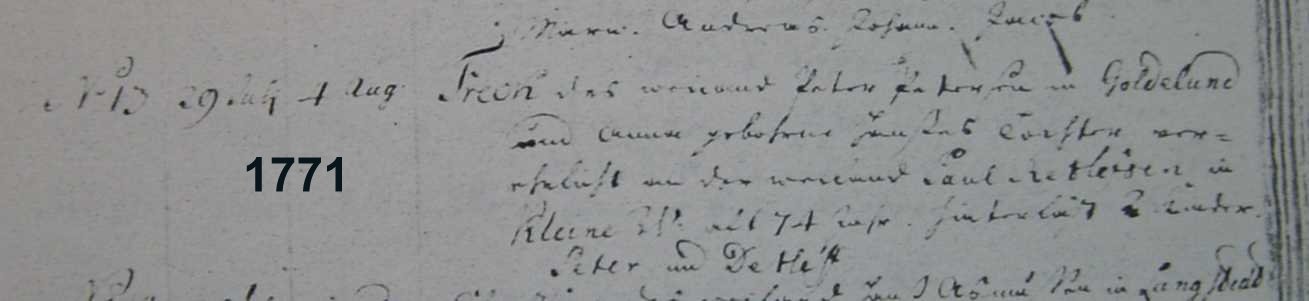 Maria. Andreas. Johann. Jacob
N 13 29 July 4 Aug. Trech des weiland Peter Petersen in Goldelund
und Anna gebohrne Tochter ver=
ehelicht an den weiland Paul Detlefsen in
Kleine W. alt 74 Jahr. hinterläst 2 Kinder.
Peter und Detleff
1771
des weiland Asmussen in